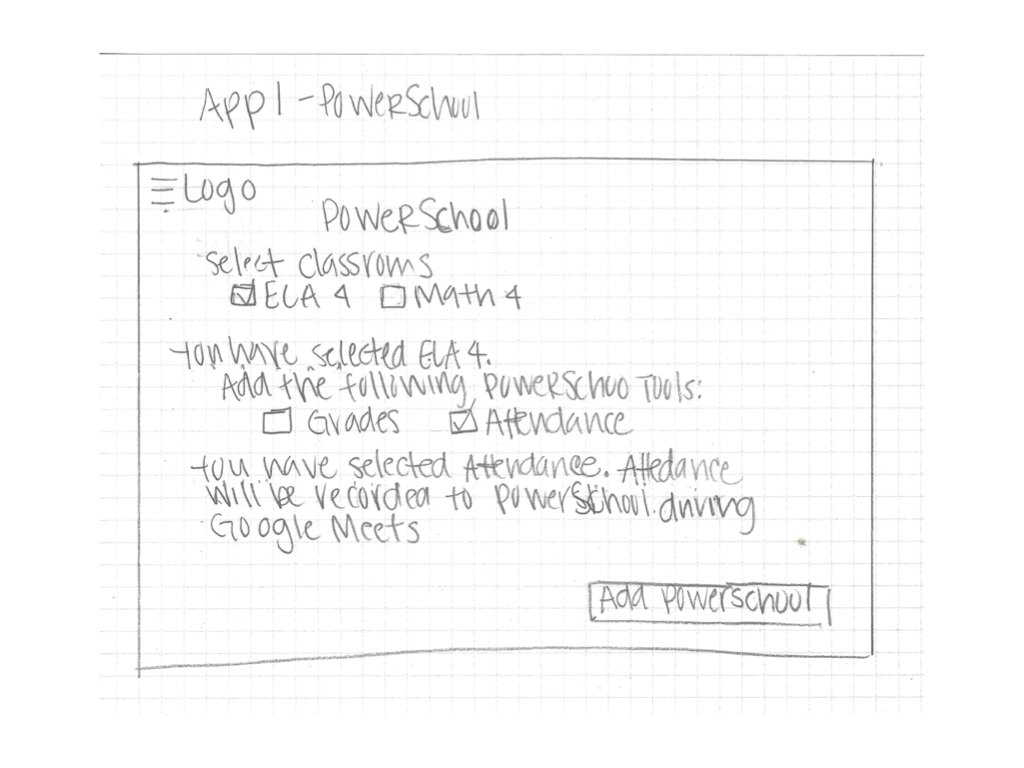 App 1 - PowerSchool
Logo
PowerSchool
Select classroms
ELA 4 Math 4
You have selected ELA 4.
Add the following PowerSchoo Tools:
Grades Attendance
You have selected Attendance. Attedance
will be recorded to PowerSchool driving
Google Meets
Add Powerschool